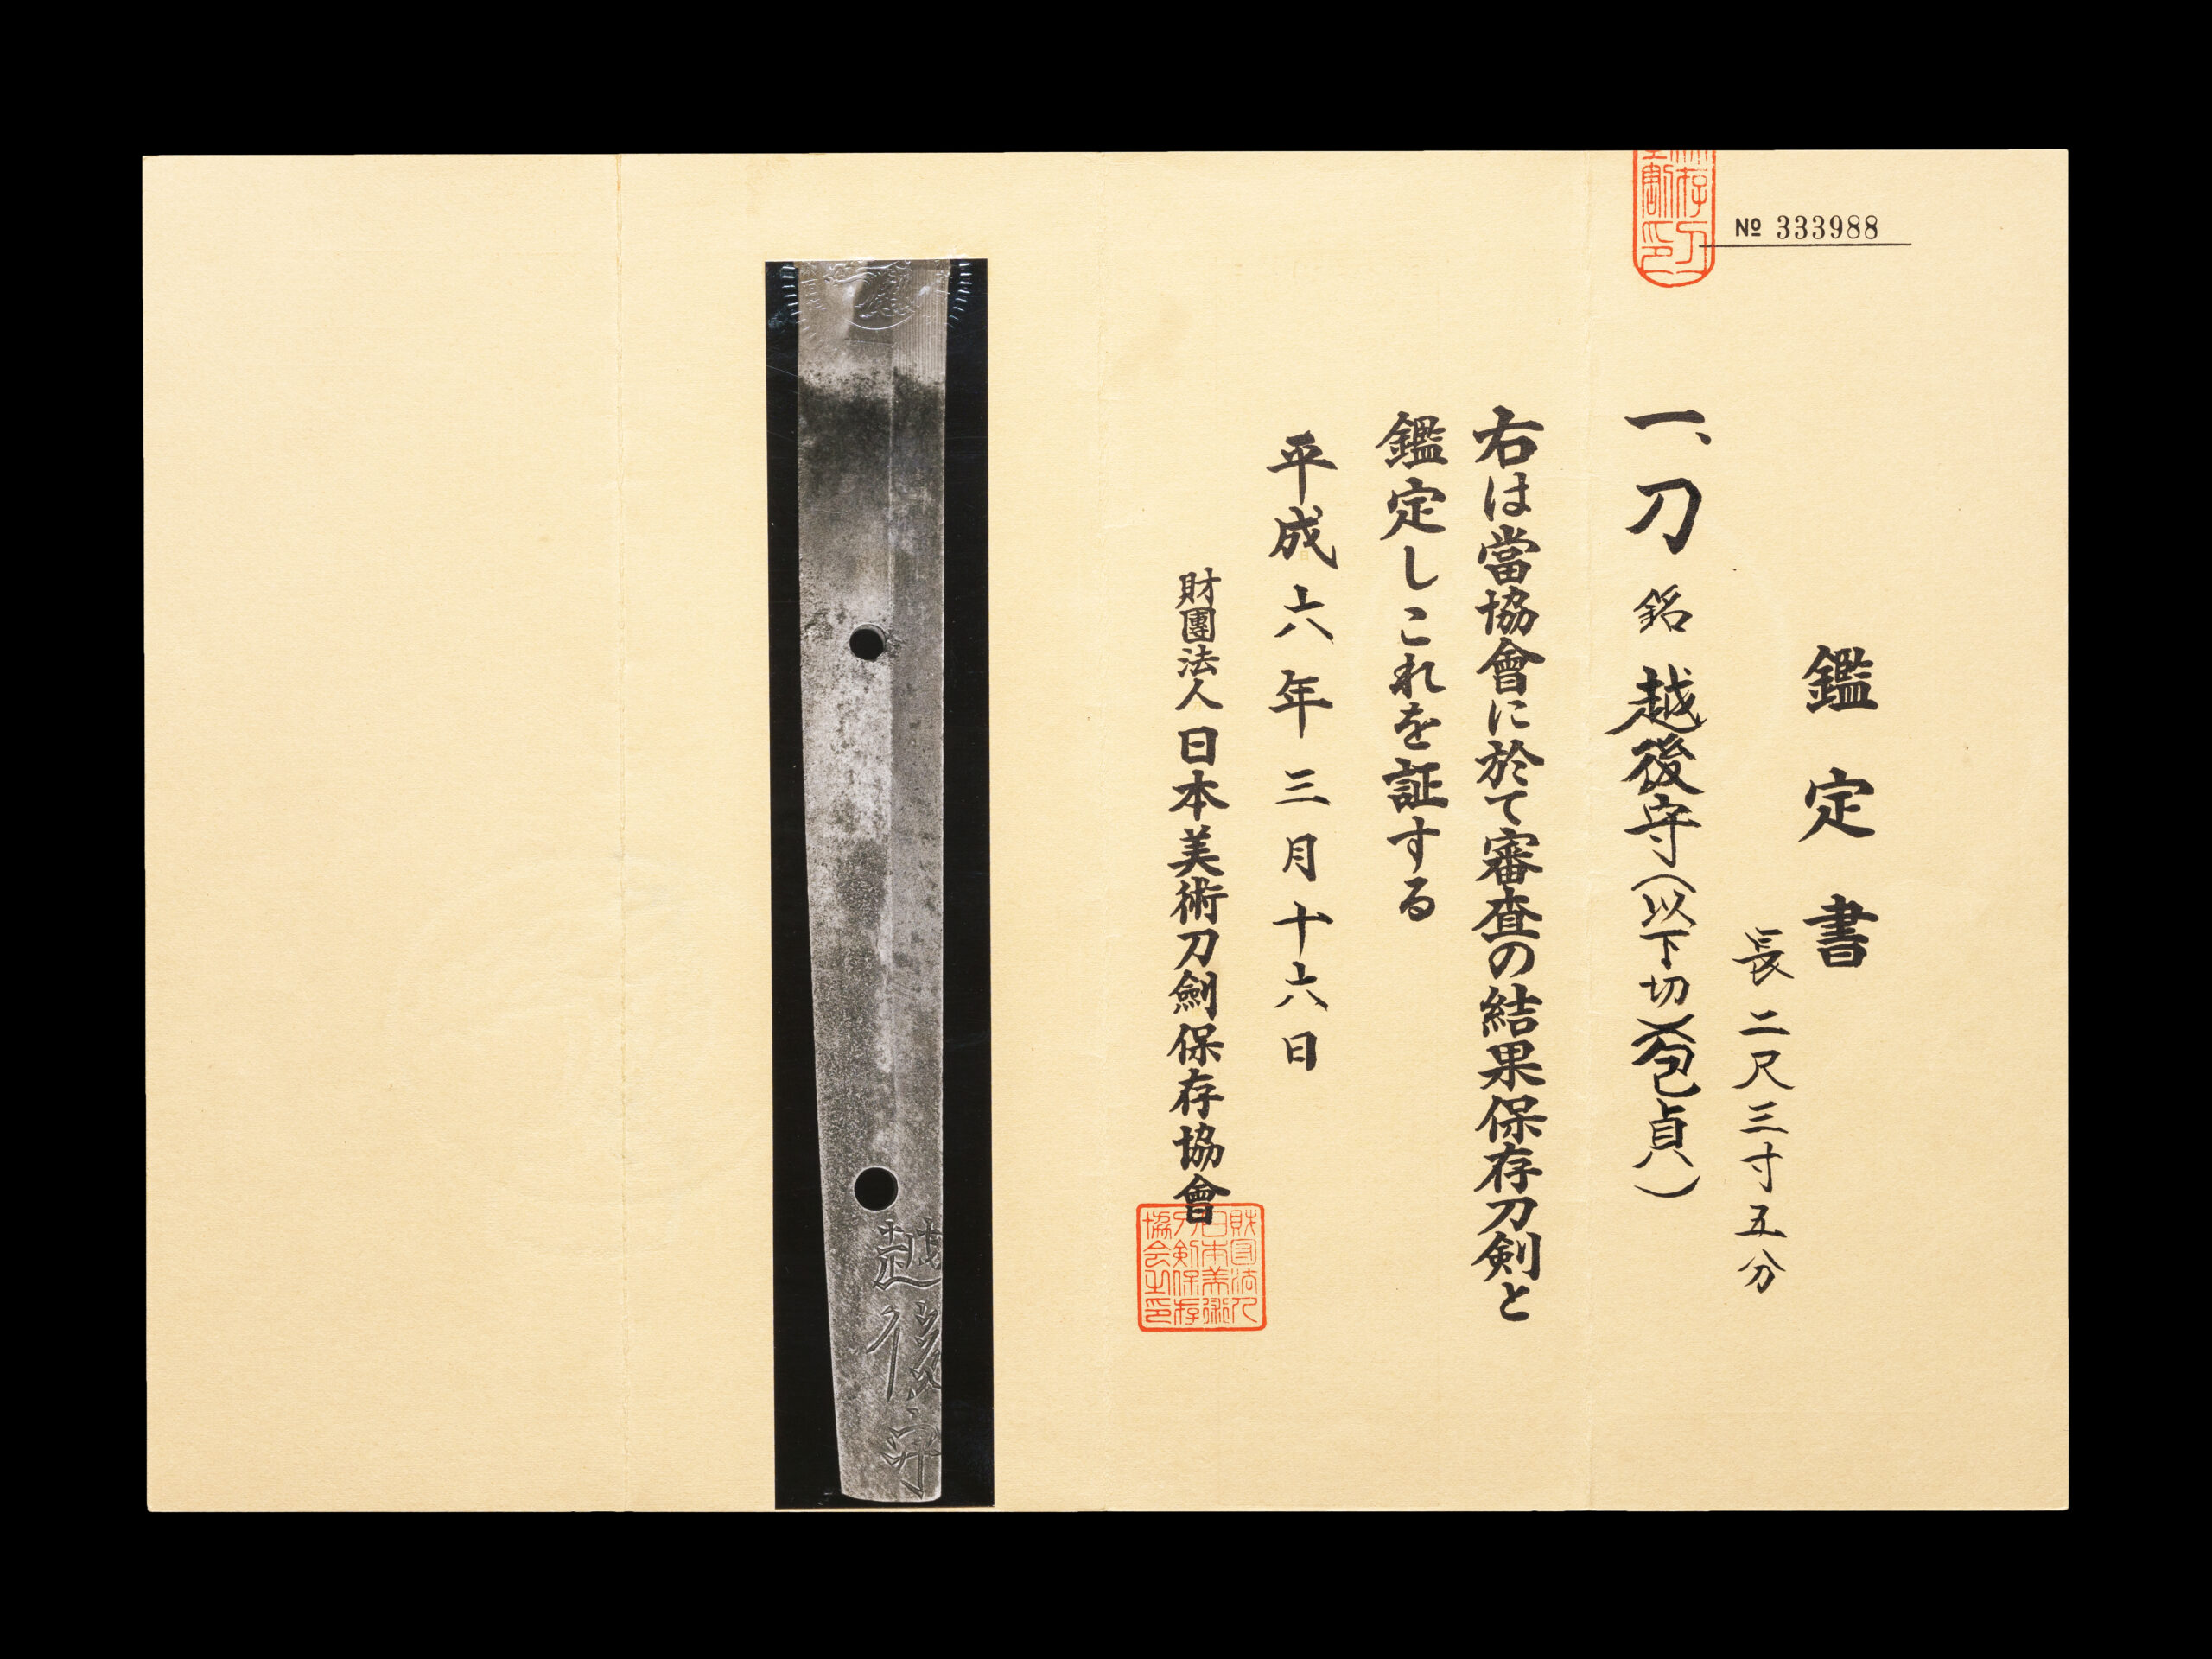 No 333988
鑑定書
長二尺三寸五分
一、刀 銘 越後守(以下切)(包貞)
右は當協會に於て審査の結果保存刀剣と
鑑定しこれを証する
平成六年三月十六日
財團法人日本美術刀劍保存協會
財団法人
日本美術
刀剣保存
協会之印
越後守